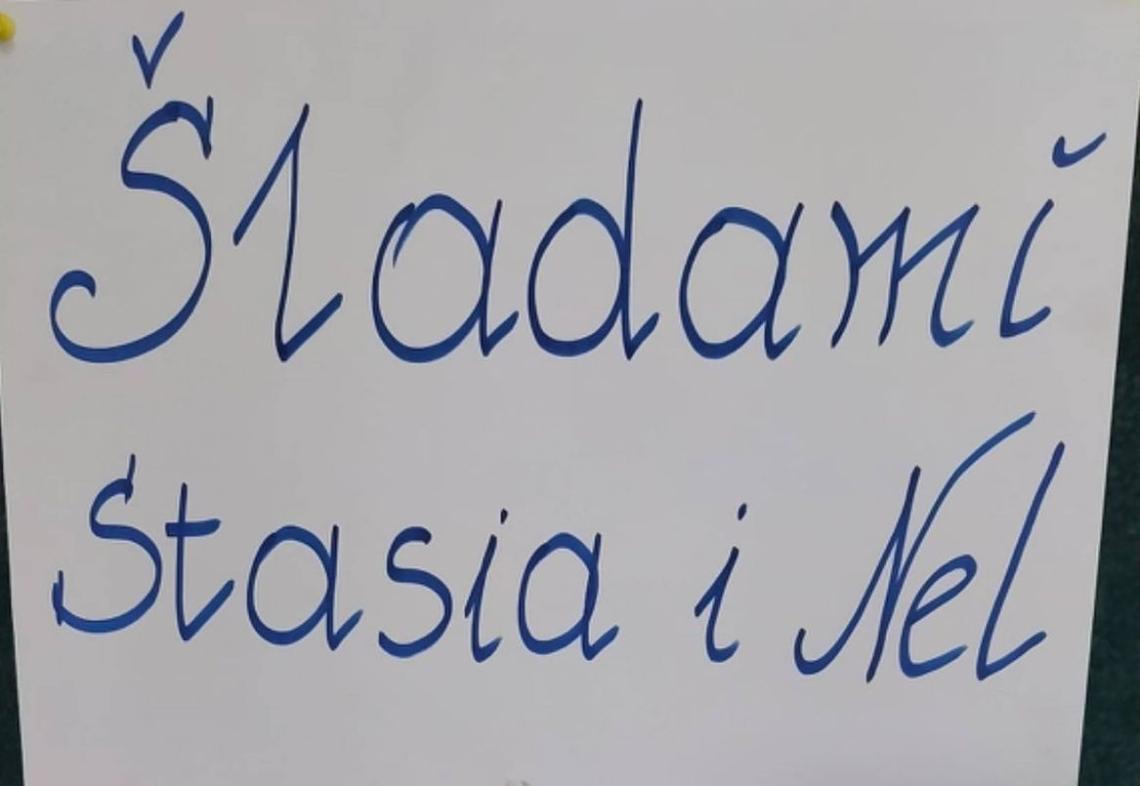 Šladami
Stasia i Nel